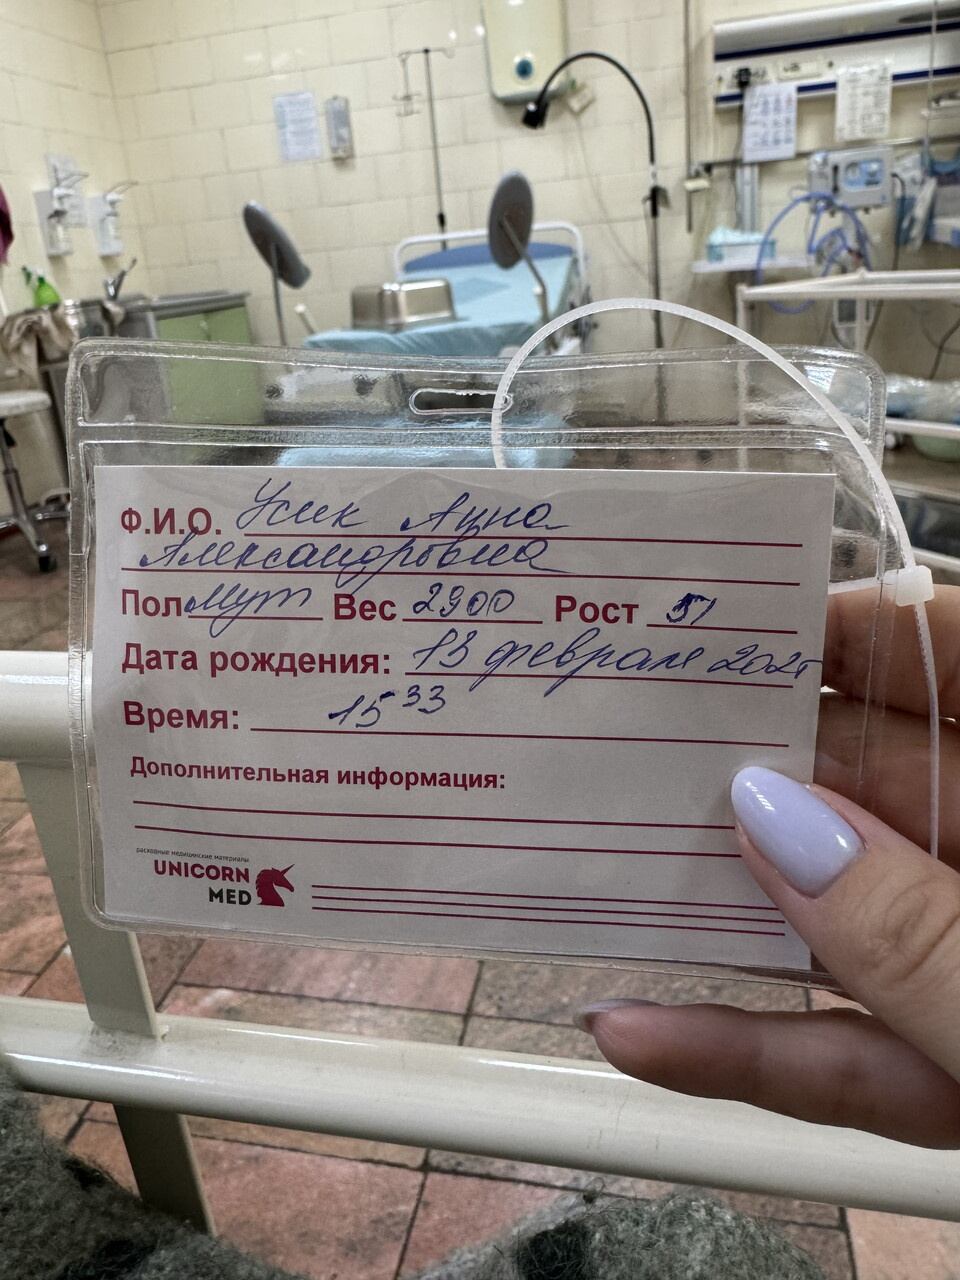 Ф.И.О. Усик Анна
Александровна
Пол Муж Вес 2900 Рост 51
Дата рождения: 13 февраля 2025
Время: 15 33
Дополнительная информация:
расходные медицинские материалы
UNICORN
MED